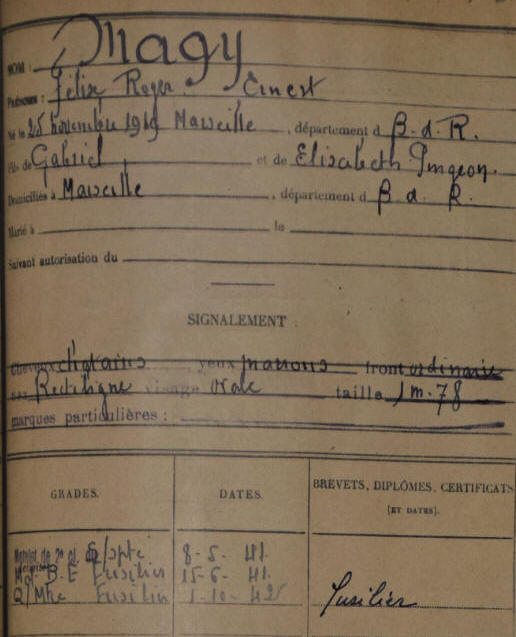 NOM : Magy
Prénoms : Félix Roger Ernest
Né le 25 novembre 1919 Marseille , département d B. d. R.
Fils de Gabriel et de Elisabeth Pingeon.
Domiciliés à Marseille , département d B d. R.
Marié à le
Suivant autorisation du
SIGNALEMENT
Cheveux chatains yeux marrons front ordinaire
nez Rectiligne visage ovale taille 1 m. 78
marques particulières :
GRADES. DATES. BREVETS, DIPLÔMES, CERTIFICATS
(ET DATES).
Matelot de 2e cl. 8-5-41.
B.E Fusilier 15-6-41.
Q/Mtre Fusilier 1-10-42
Fusilier